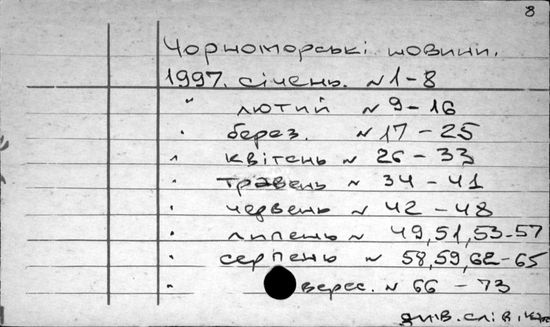 8
Чорноморські новини.
1997. січень. N 1-8
" лютий N 9-16
" берез. N 17-25
" квітень N 26-33
" травень N 34-41
" червень N 42-48
" липень N 49,51,53-57
" серпень N 58,59,62-65
" верес. N 66-73